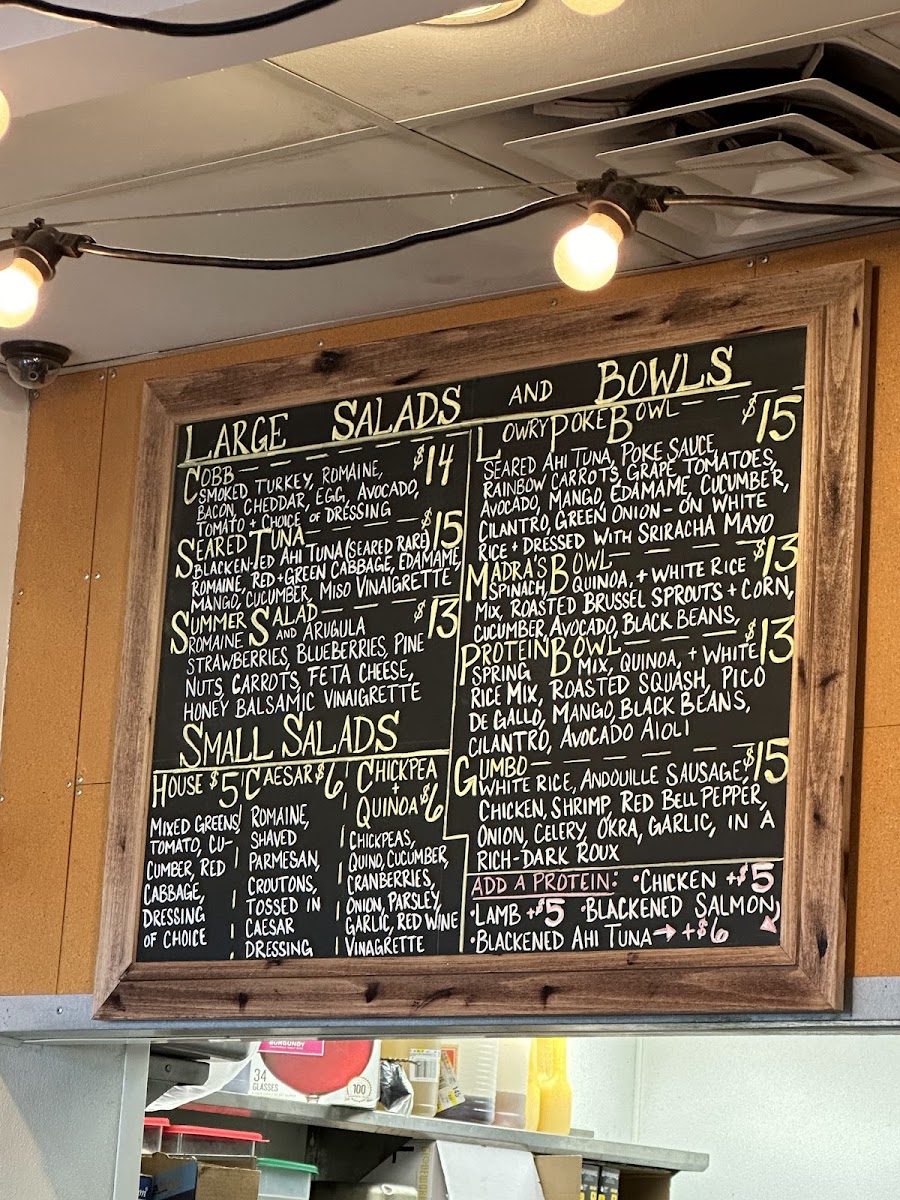 LARGE SALADS AND BOWLS
COBB $14
SMOKED TURKEY, ROMAINE,
BACON, CHEDDAR, EGG, AVOCADO,
TOMATO + CHOICE OF DRESSING
SEARED TUNA $15
BLACKEN-ED AHI TUNA (SEARED RARE)
ROMAINE, RED + GREEN CABBAGE, EDAMAME,
MANGO, CUCUMBER, MISO VINAIGRETTE
SUMMER SALAD $13
ROMAINE AND ARUGULA
STRAWBERRIES, BLUEBERRIES, PINE
NUTS, CARROTS, FETA CHEESE,
HONEY BALSAMIC VINAIGRETTE
SMALL SALADS
HOUSE $5
MIXED GREENS
TOMATO, CU-
CUMBER, RED
CABBAGE,
DRESSING
OF CHOICE
CAESAR $6
ROMAINE,
SHAVED
PARMESAN,
CROUTONS,
TOSSED IN
CAESAR
DRESSING
CHICKPEA
+
QUINOA $6
CHICKPEAS,
QUINO, CUCUMBER,
CRANBERRIES,
ONION, PARSLEY,
GARLIC, RED WINE
VINAGRETTE
LOWRY POKE BOWL $15
SEARED AHI TUNA, POKE SAUCE,
RAINBOW CARROTS, GRAPE TOMATOES,
AVOCADO, MANGO, EDAMAME, CUCUMBER,
CILANTRO, GREEN ONION - ON WHITE
RICE + DRESSED WITH SRIRACHA MAYO
MADRA'S BOWL $13
SPINACH, QUINOA, + WHITE RICE
MIX, ROASTED BRUSSEL SPROUTS + CORN,
CUCUMBER, AVOCADO, BLACK BEANS,
PROTEIN BOWL $13
SPRING MIX, QUINOA, + WHITE
RICE MIX, ROASTED SQUASH, PICO
DE GALLO, MANGO, BLACK BEANS,
CILANTRO, AVOCADO AIOLI
GUMBO $15
WHITE RICE, ANDOUILLE SAUSAGE,
CHICKEN, SHRIMP, RED BELL PEPPER,
ONION, CELERY, OKRA, GARLIC, IN A
RICH-DARK ROUX
ADD A PROTEIN: •CHICKEN +$5
•LAMB +$5 •BLACKENED SALMON
•BLACKENED AHI TUNA → +$6
BURGUNDY
34
GLASSES
100